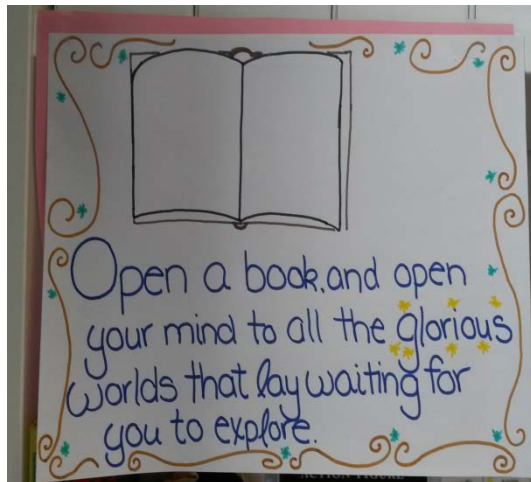 Open a book, and open
your mind to all the glorious
worlds that lay waiting for
you to explore.
ACTION FIGURE